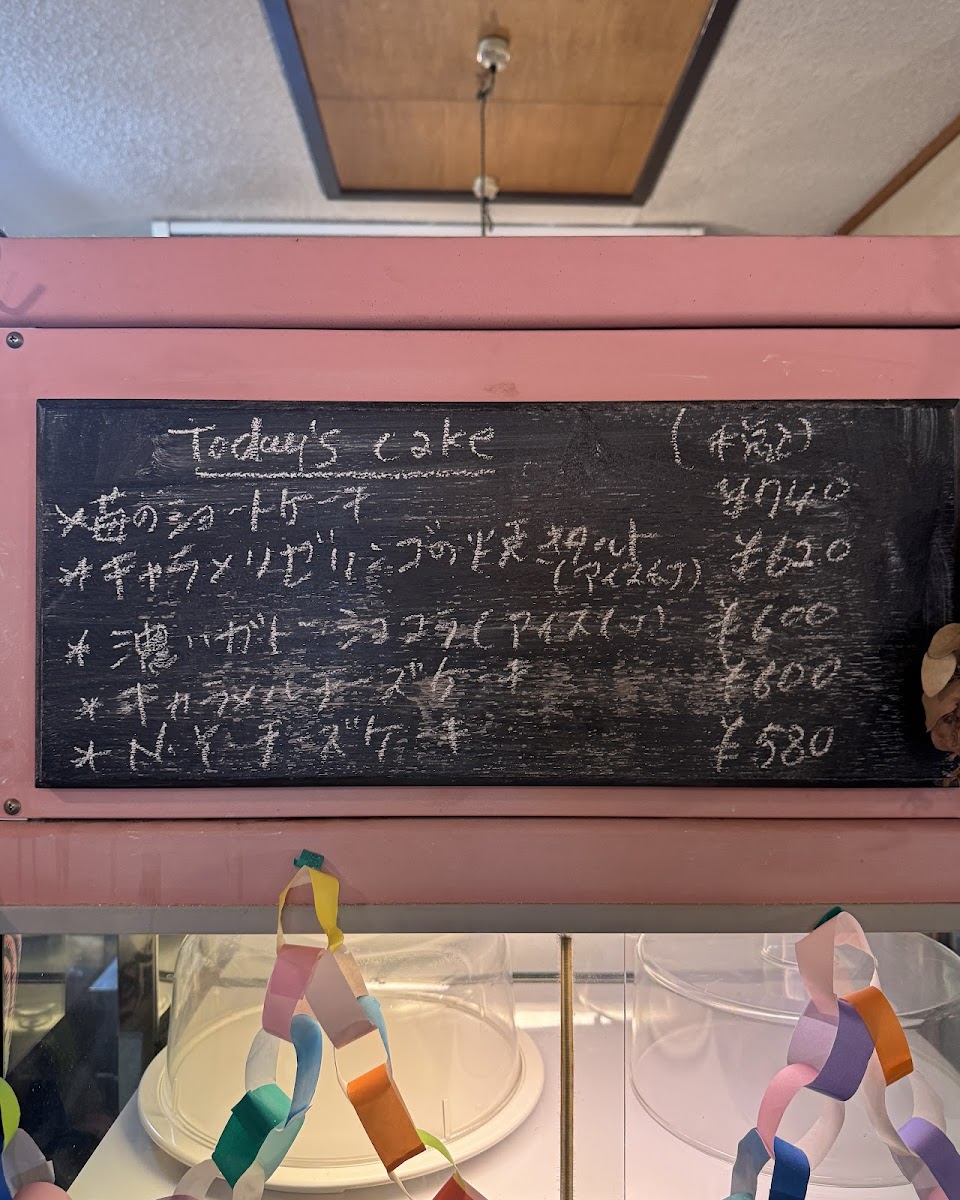 Today's cake (税込)
*苺のショートケーキ ¥740
*キャラメリゼリンゴの焼タルト ¥620
(アイス付)
*濃いガトーショコラ(アイス付) ¥600
*キャラメルチーズケーキ ¥600
*N.Yチーズケーキ ¥580